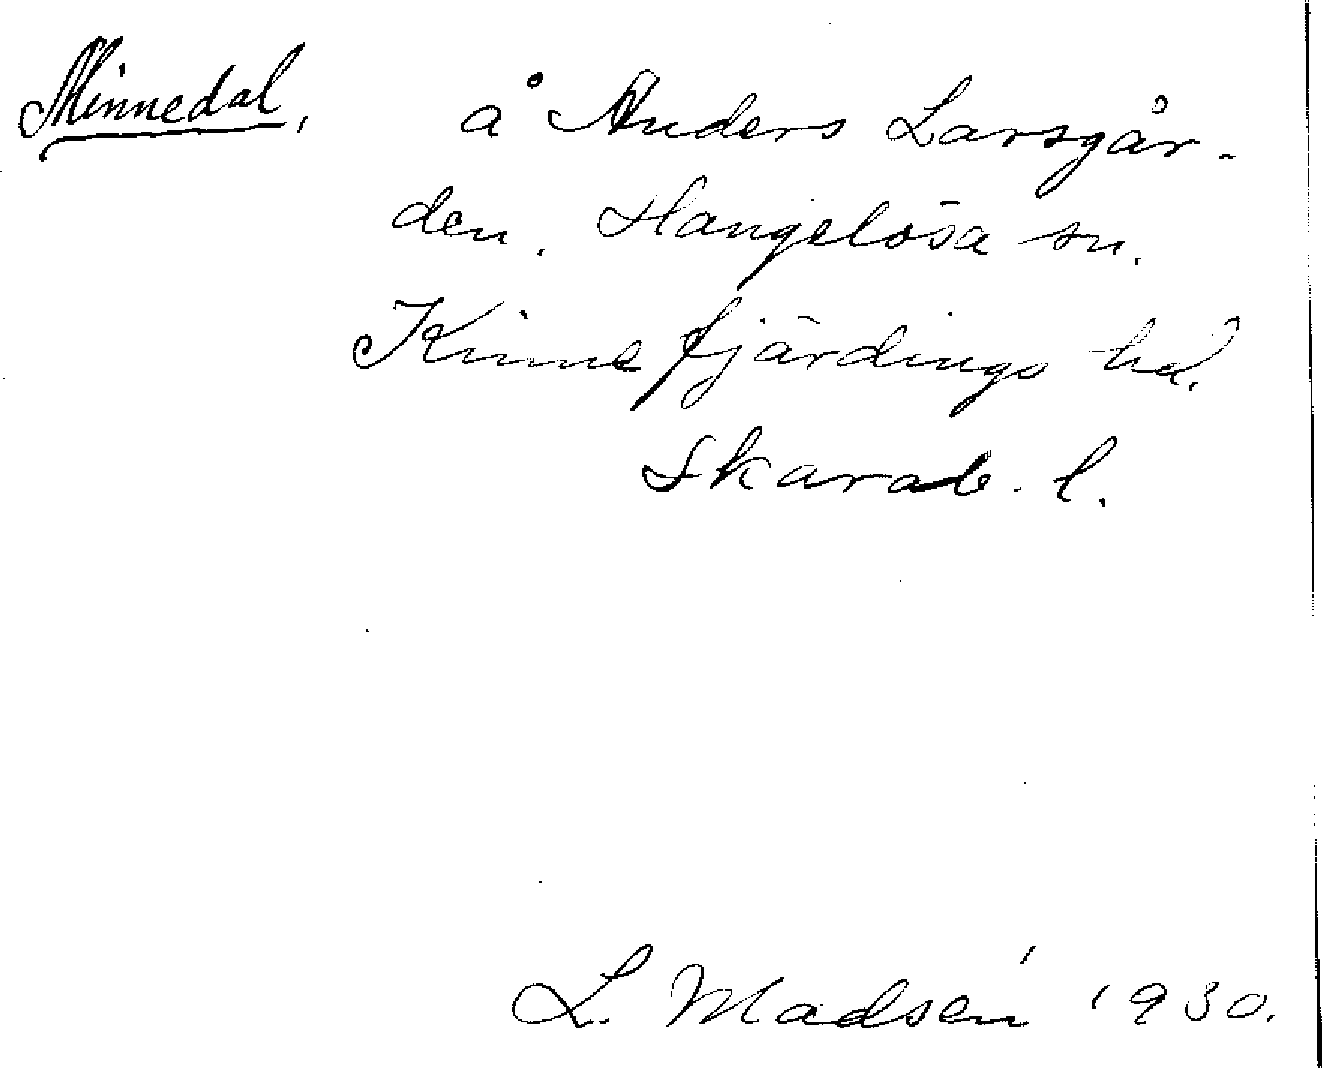 Minnedal, å Anders Larsgår-
den. Hangelösa sn.
Kinnefjärdings hd.
Skarab. l.
L. Madsén 1930.